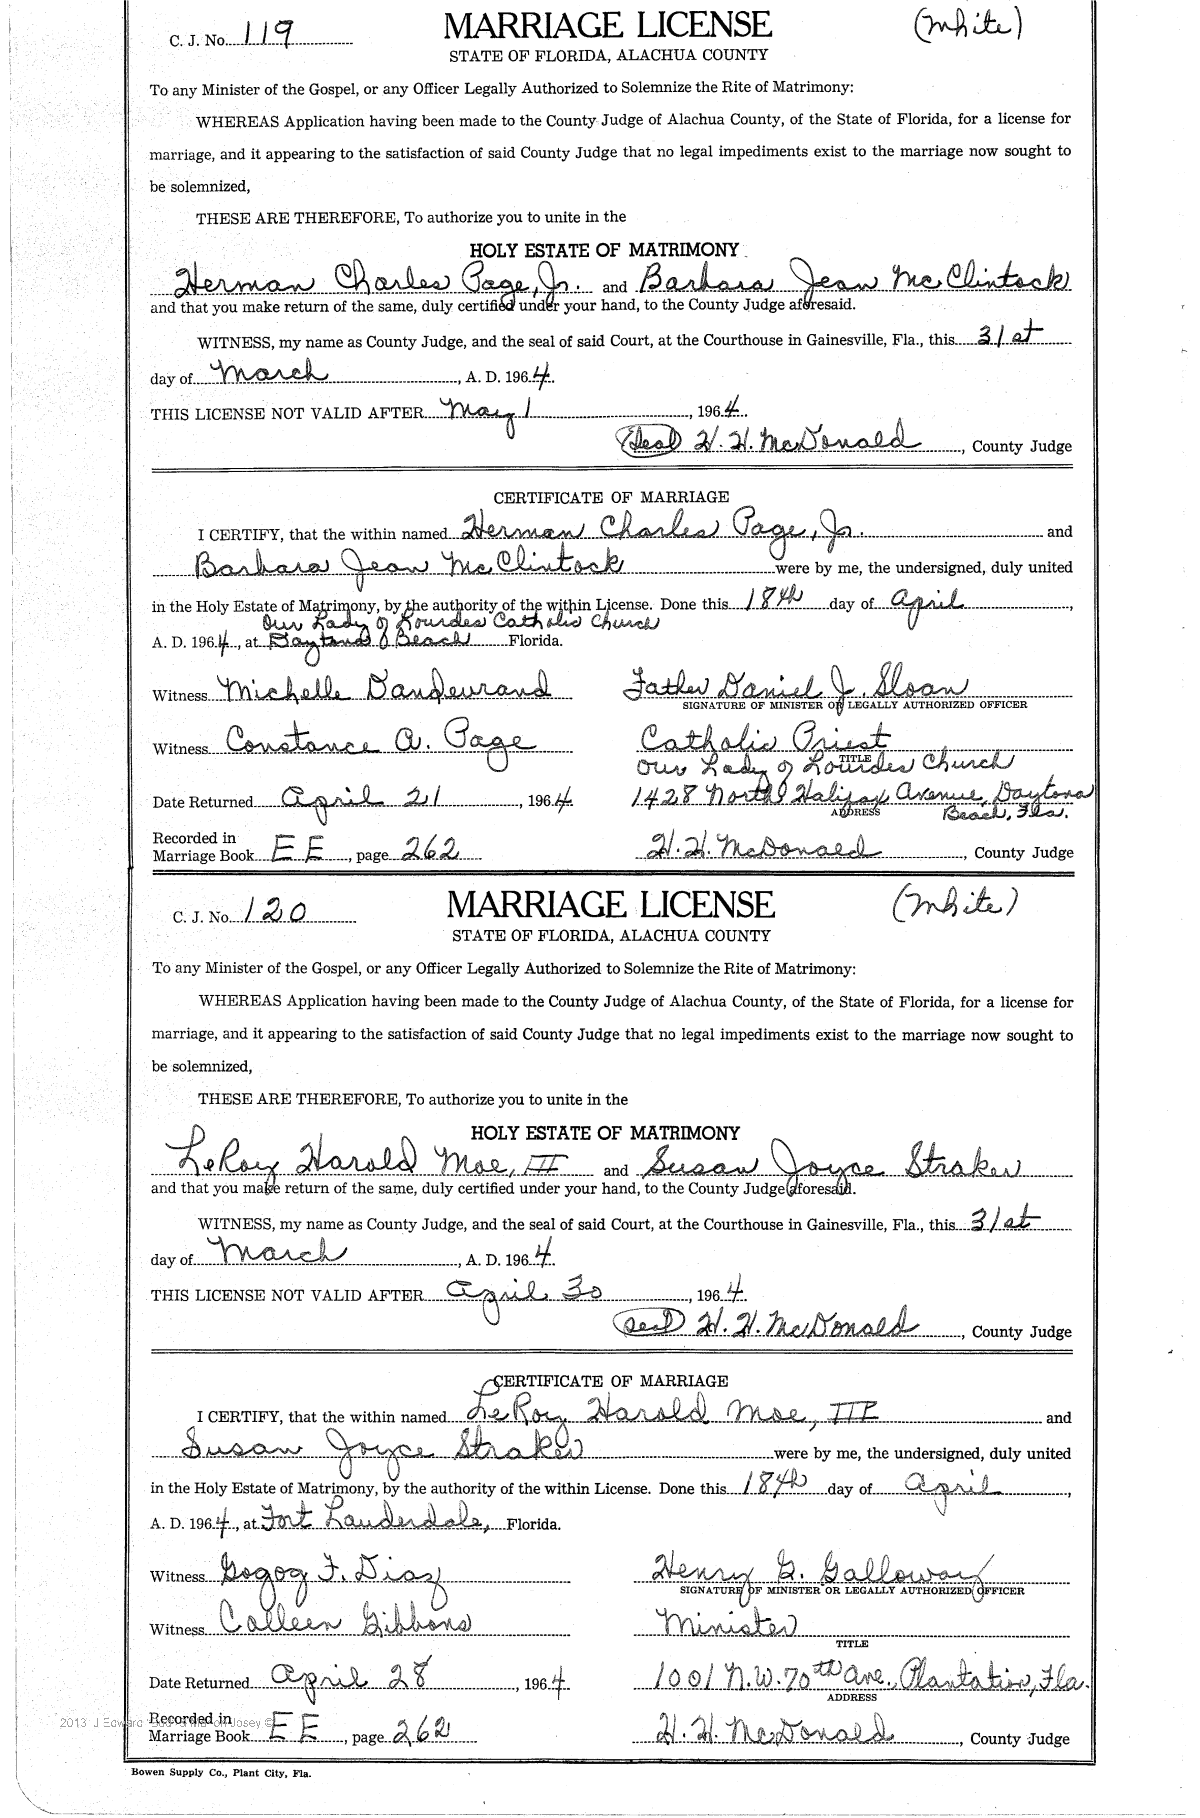 C. J. No. 119 MARRIAGE LICENSE (White)
STATE OF FLORIDA, ALACHUA COUNTY
To any Minister of the Gospel, or any Officer Legally Authorized to Solemnize the Rite of Matrimony:
WHEREAS Application having been made to the County Judge of Alachua County, of the State of Florida, for a license for
marriage, and it appearing to the satisfaction of said County Judge that no legal impediments exist to the marriage now sought to
be solemnized,
THESE ARE THEREFORE, To authorize you to unite in the
HOLY ESTATE OF MATRIMONY
Herman Charles Page, Jr. and Barbara Jean McClintock
and that you make return of the same, duly certified under your hand, to the County Judge aforesaid.
WITNESS, my name as County Judge, and the seal of said Court, at the Courthouse in Gainesville, Fla., this 31st
day of March, A. D. 1964.
THIS LICENSE NOT VALID AFTER May 1, 1964.
(Seal) H. H. McDonald, County Judge
CERTIFICATE OF MARRIAGE
I CERTIFY, that the within named Herman Charles Page, Jr. and
Barbara Jean McClintock were by me, the undersigned, duly united
in the Holy Estate of Matrimony, by the authority of the within License. Done this 18th day of April,
Our Lady of Lourdes Catholic Church
A. D. 1964, at Daytona Beach Florida.
Witness Michelle Dandeurand Father Daniel J. Sloan
SIGNATURE OF MINISTER OR LEGALLY AUTHORIZED OFFICER
Witness Constance A. Page Catholic Priest
TITLE
Our Lady of Lourdes Church
Date Returned April 21, 1964. 1428 North Halifax Avenue, Daytona
ADDRESS Beach, Fla.
Recorded in
Marriage Book EE, page 262 H. H. McDonald, County Judge
C. J. No. 120 MARRIAGE LICENSE (White)
STATE OF FLORIDA, ALACHUA COUNTY
To any Minister of the Gospel, or any Officer Legally Authorized to Solemnize the Rite of Matrimony:
WHEREAS Application having been made to the County Judge of Alachua County, of the State of Florida, for a license for
marriage, and it appearing to the satisfaction of said County Judge that no legal impediments exist to the marriage now sought to
be solemnized,
THESE ARE THEREFORE, To authorize you to unite in the
HOLY ESTATE OF MATRIMONY
LeRoy Harold Moe, III and Susan Joyce Straker
and that you make return of the same, duly certified under your hand, to the County Judge aforesaid.
WITNESS, my name as County Judge, and the seal of said Court, at the Courthouse in Gainesville, Fla., this 31st
day of March, A. D. 1964.
THIS LICENSE NOT VALID AFTER April 30, 1964.
(Seal) H. H. McDonald, County Judge
CERTIFICATE OF MARRIAGE
I CERTIFY, that the within named LeRoy Harold Moe, III and
Susan Joyce Straker were by me, the undersigned, duly united
in the Holy Estate of Matrimony, by the authority of the within License. Done this 18th day of April,
A. D. 1964, at Fort Lauderdale, Florida.
Witness Gogog F. Diaz Henry G. Galloway
SIGNATURE OF MINISTER OR LEGALLY AUTHORIZED OFFICER
Witness Colleen Gibbons Minister
TITLE
Date Returned April 28, 1964. 1001 N.W. 70th Ave., Plantation, Fla.
ADDRESS
Recorded in
2013 J Edward Josey ©
Marriage Book EE, page 262 H. H. McDonald, County Judge
Bowen Supply Co., Plant City, Fla.